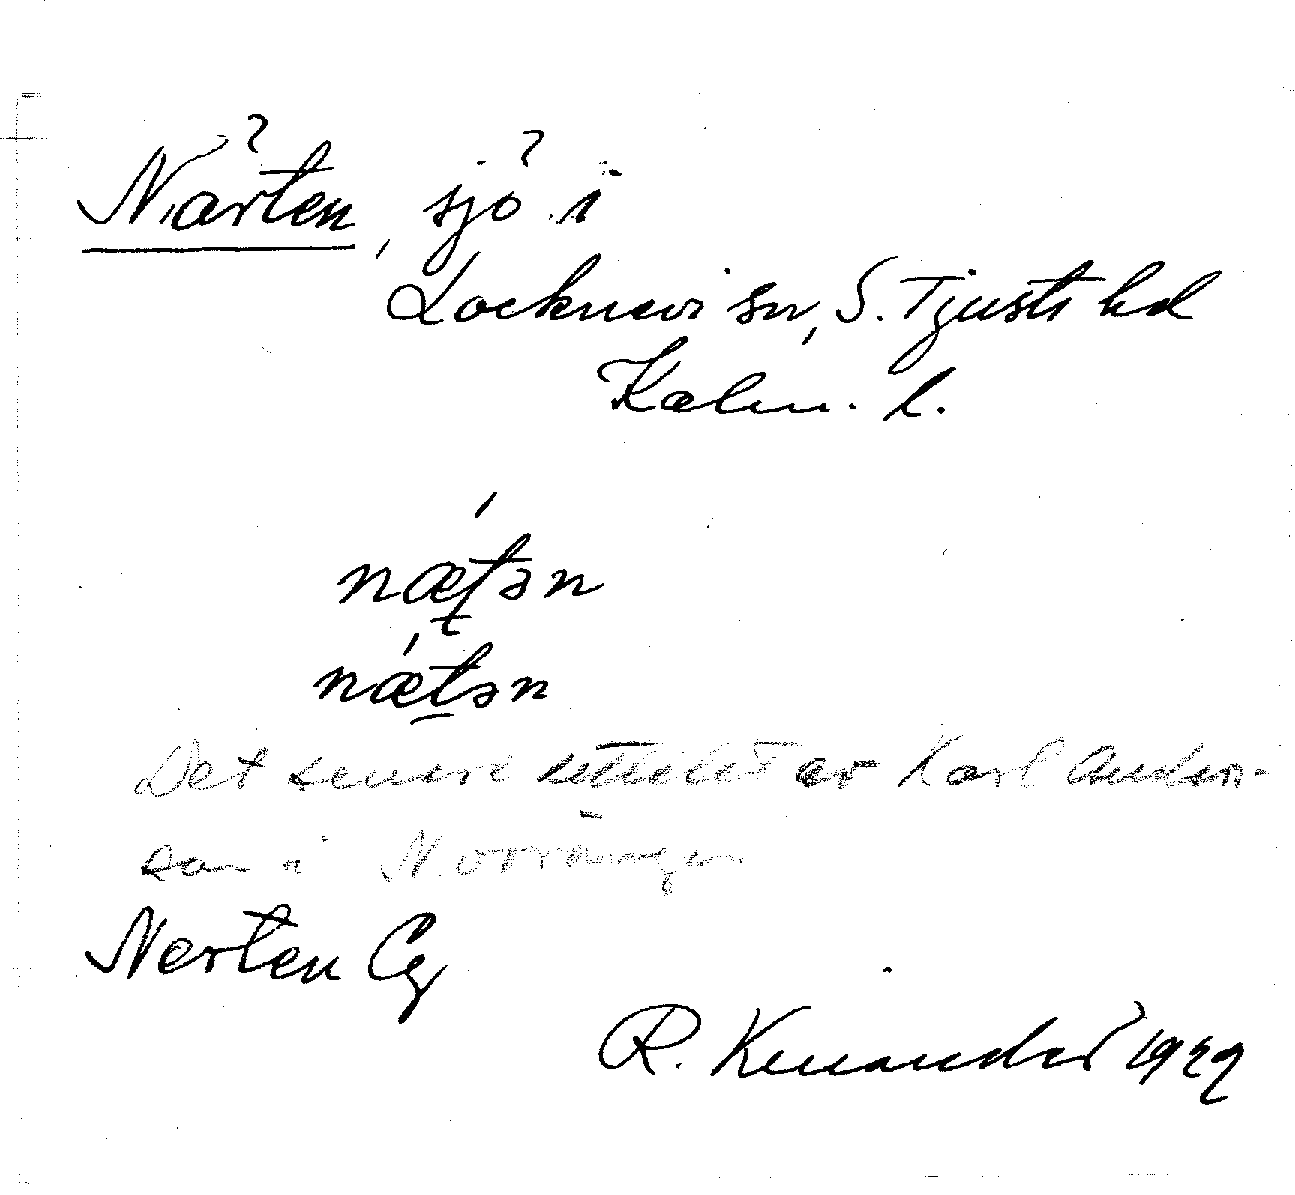 Närten, sjö i
Locknevi sn, S. Tjusts hd
Kalm. l.
næʈən
næt̠ən
Det senare uttalet av Karl Anders-
son i Norrängen
Nerten Cg
R. Kenander 1929